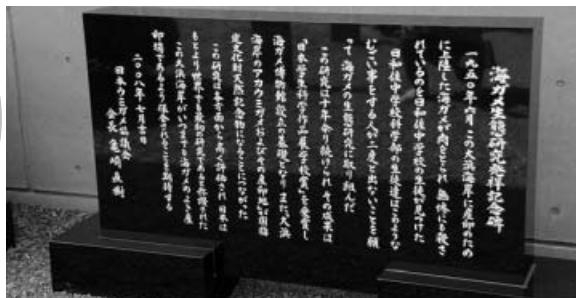 海ガメ生態研究発祥記念碑
一九五〇年七月この大浜海岸に産卵のため
に上陸した海ガメが肉をとられ無惨にも殺さ
れているのを日和佐中学校の生徒が見つけた
日和佐中学校科学部の生徒達はこのような
むごい事をする人が二度と出ないことを願
って海ガメの生態研究に取り組んだ
この研究は十年余り続けられその成果は
「日本学生科学作品展学校賞」を受賞し
海ガメ博物館設立の基礎となりまた大浜
海岸のアカウミガメおよびその産卵地が国指
定文化財天然記念物になることにつながった
この研究は各方面から高く評価され日本は
もとより世界でも最初の研究であると称賛された
この大浜海岸がいつまでも海ガメのよき産
卵場であるよう保全されることを期待する
二〇〇八年七月吉日
日本ウミガメ協議会
会長 亀崎直樹